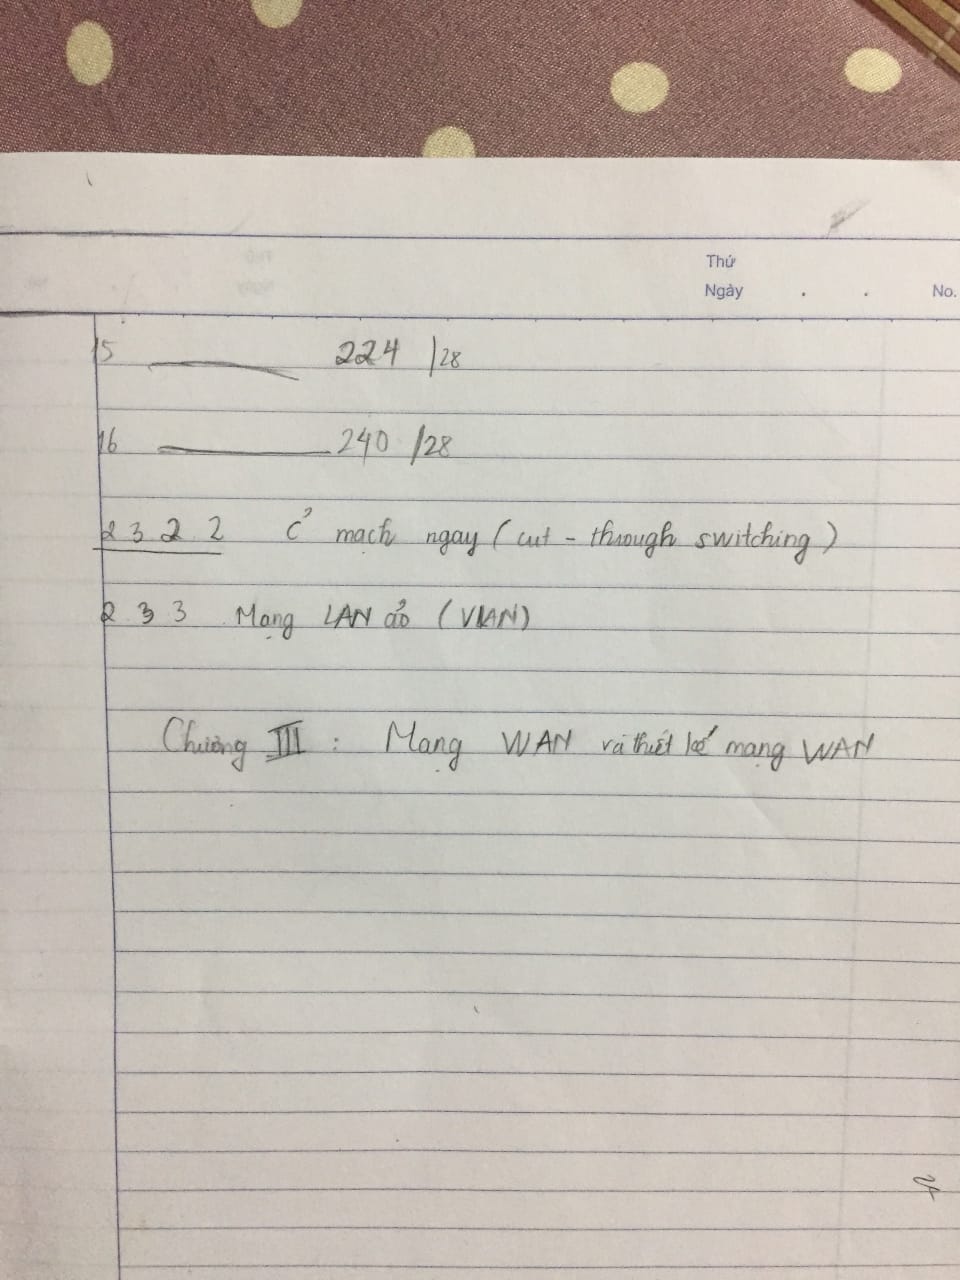 Thứ
Ngày . . No.
15 ——— 224 /28
16 ——— 240 /28
2 3 2 2 C̉ mạch ngay (cut - through switching)
2 3 3 Mạng LAN ảo (VLAN)
Chương III : Mạng WAN và thiết kế mạng WAN